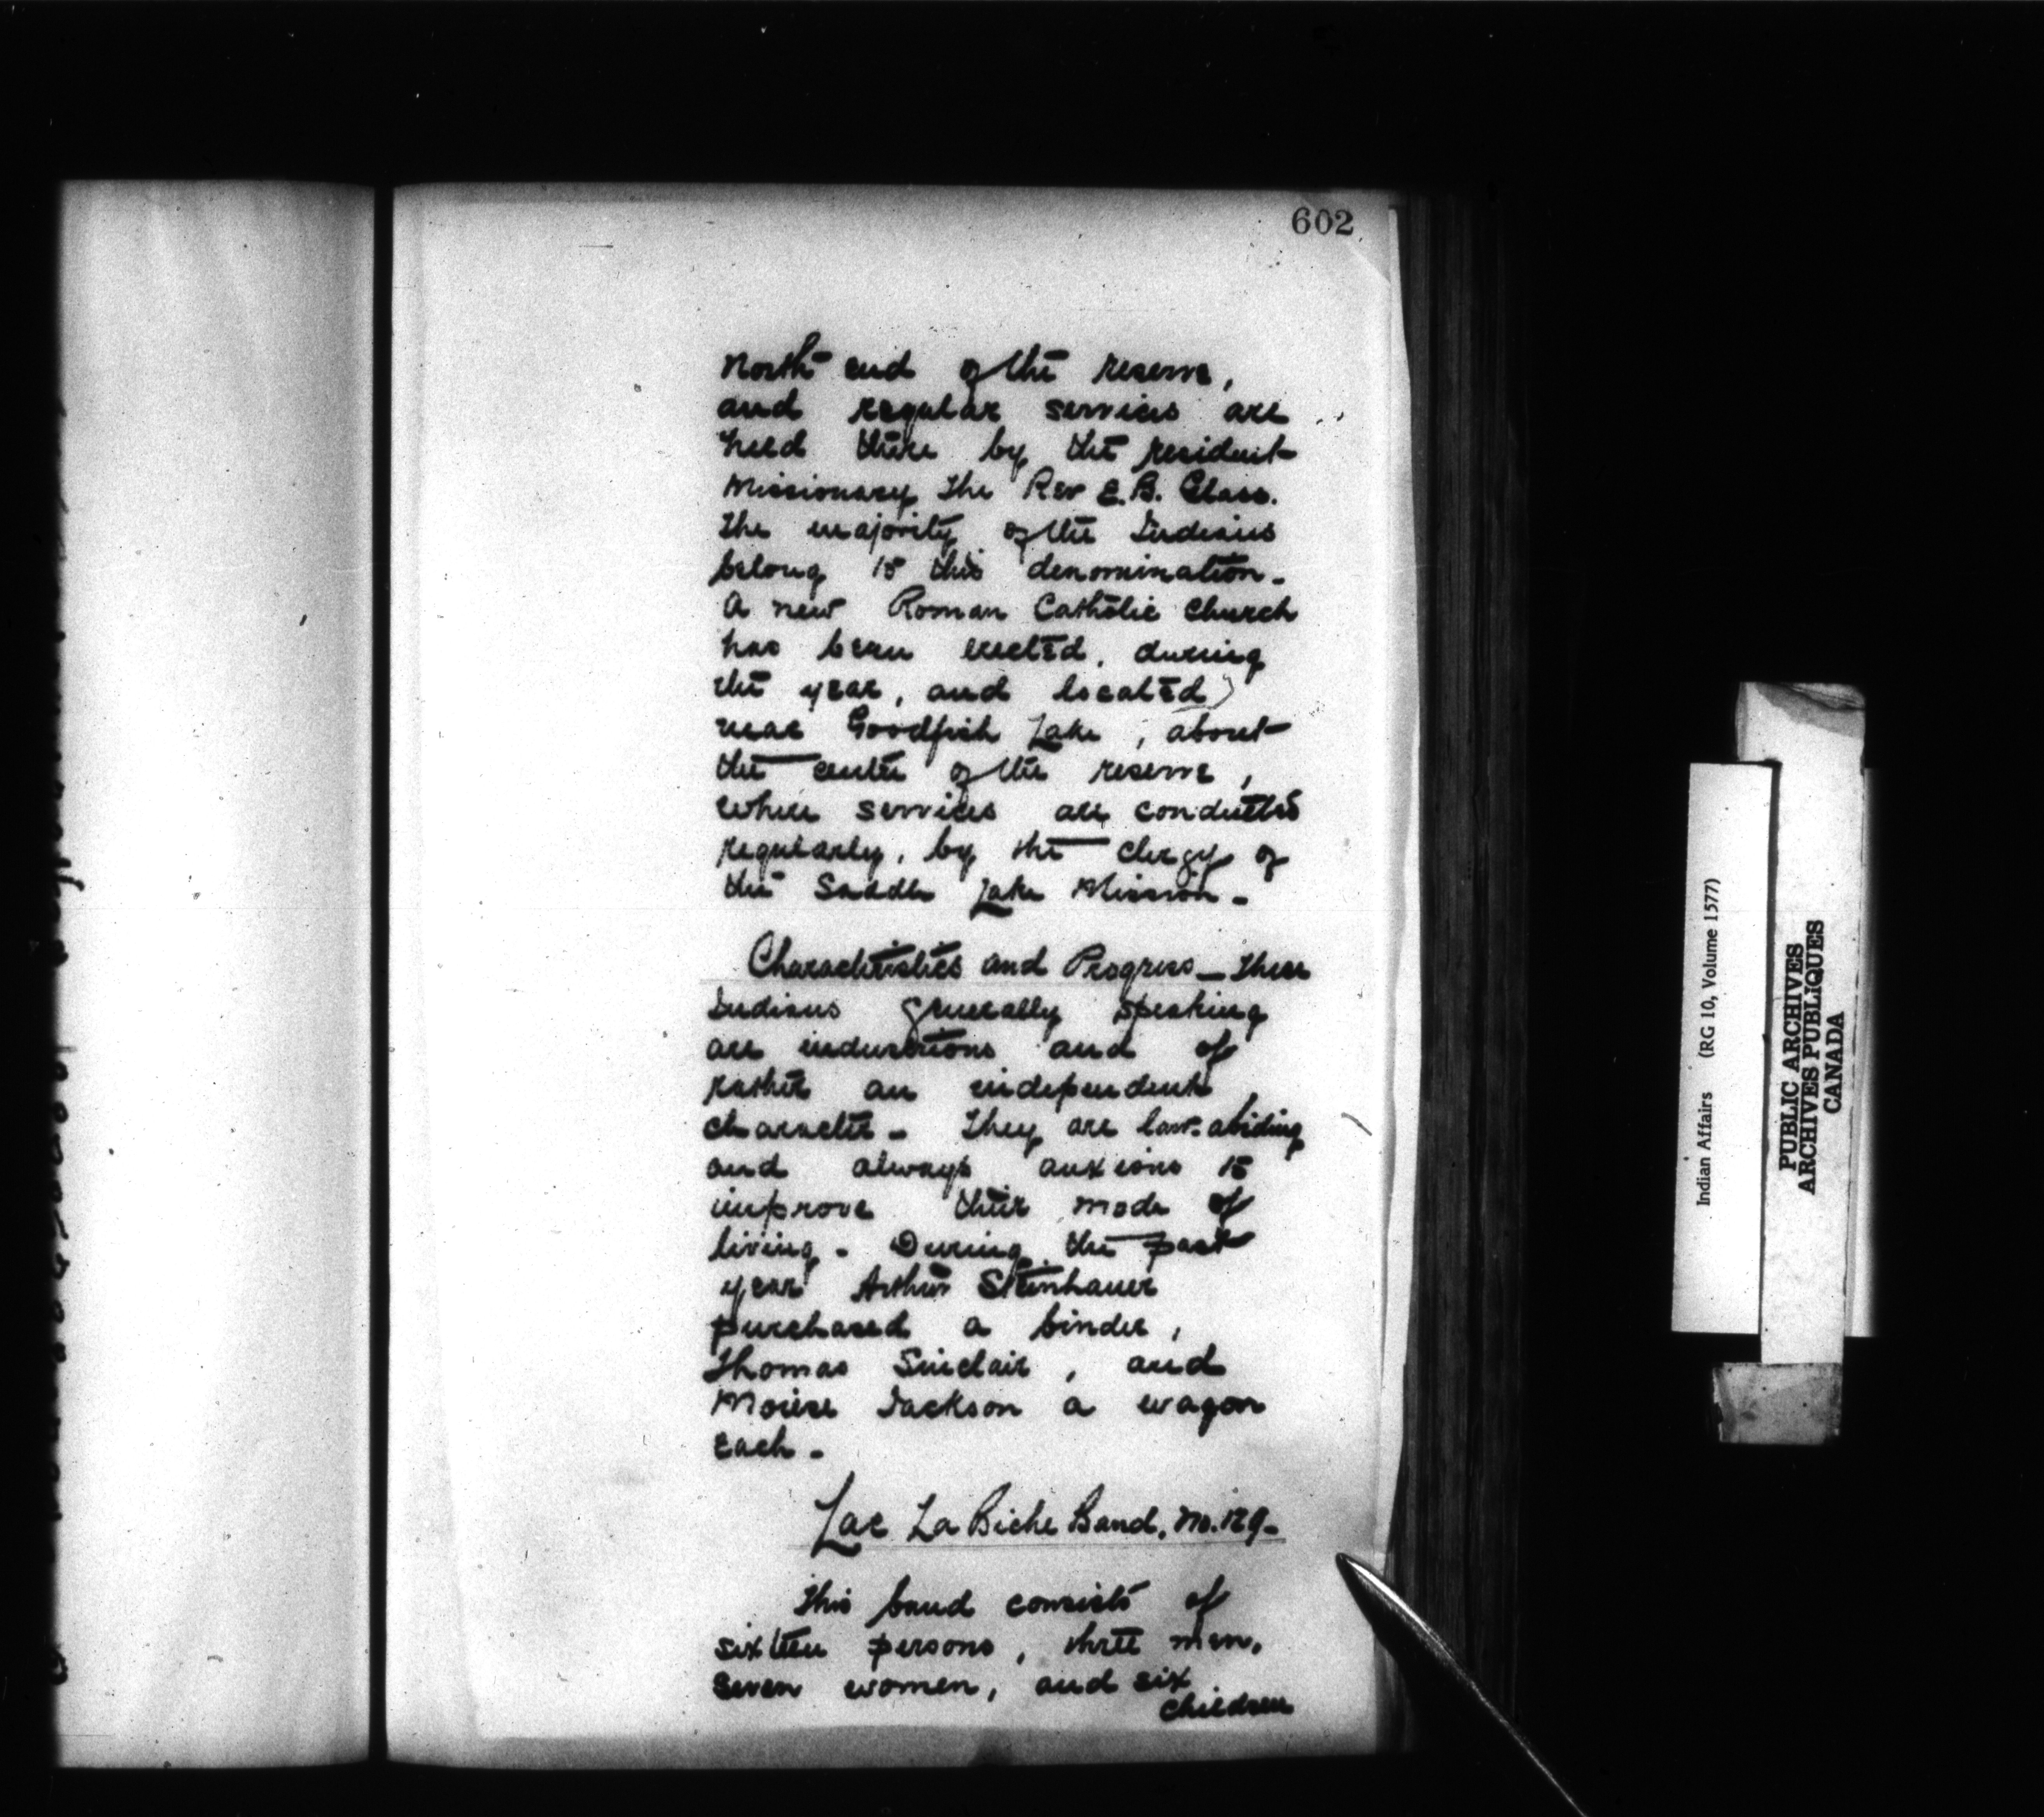 602
North end of the reserve,
and regular services are
held there by the resident
Missionary the Rev E.B. Glass.
The majority of the Indians
belong to this denomination.
A new Roman Catholic Church
has been erected, during
the year, and located
near Goodfish Lake, about
the center of the reserve,
where services are conducted
regularly, by the clergy of
the Saddle Lake Mission.
Characteristics and Progress_ These
Indians generally speaking
are industrious and of
rather an independent
character. They are law-abiding
and always anxious to
improve their mode of
living. During the past
year Arthur Steinhauer
purchased a binder,
Thomas Sinclair, and
Moise Jackson a wagon
each.
Lac La Biche Band, No. 129.
This band consists of
sixteen persons, three men,
seven women, and six
children
Indian Affairs (RG 10, Volume 1577)
PUBLIC ARCHIVES
ARCHIVES PUBLIQUES
CANADA